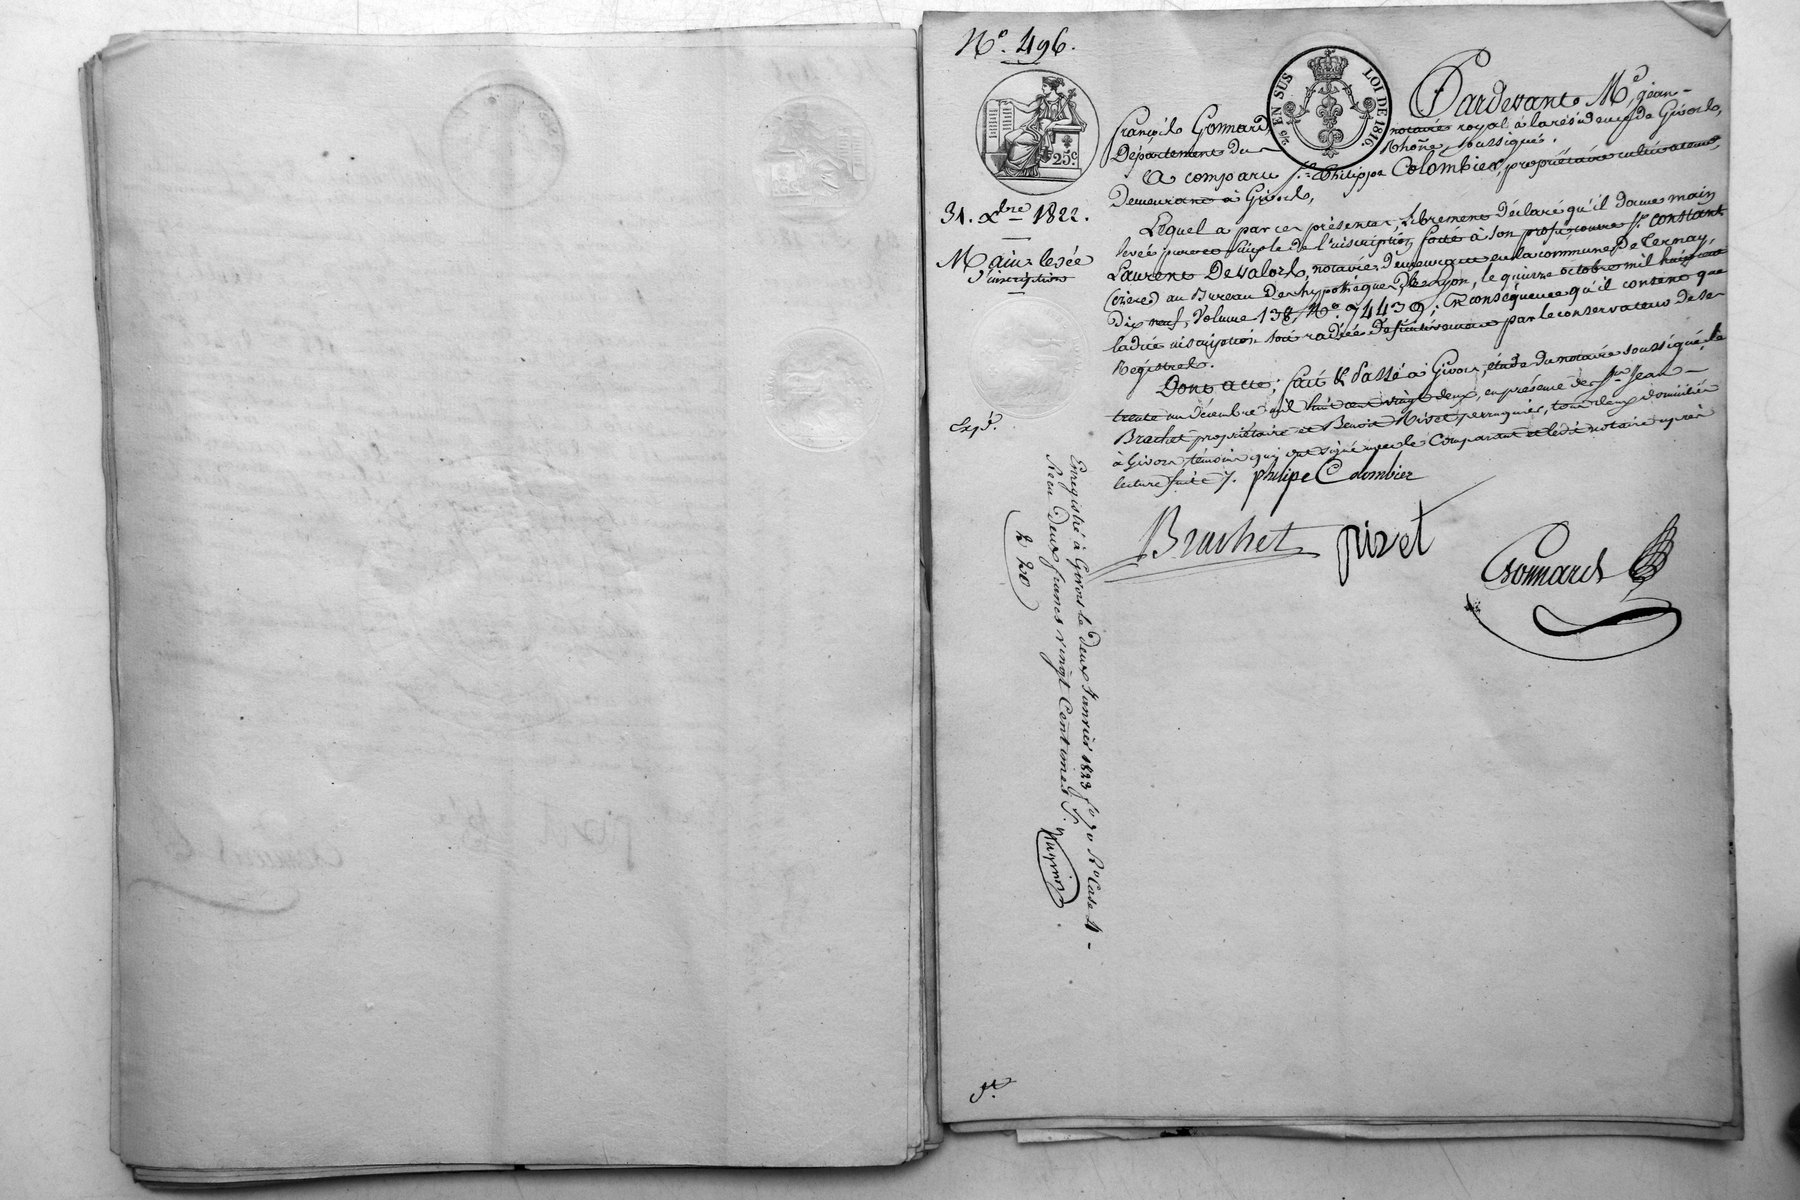 N.° 496.
EN SUS LOI DE 1816.
25c
31. Xbre 1822.
Main-levée
d'inscription
Exp.é
Pardevant M.e jean-
françois Gonnard, notaire royal à la résidence de Givors,
Département du Rhône, soussigné.
A comparu s.r Philippe Colombier, propriétaire cultivateur,
Demeurant à Givors,
Lequel a par ces présentes, librement déclaré qu'il donne main
levée pure et simple de l'inscription faite à son profit contre s.r Constant
Laurent Devalors, notaire, demeurant en la commune de Ternay,
(isère) au Bureau des hypothèques de Lyon, le quinze octobre mil huit cent
dix neuf, Volume 138, N.° 7439; En conséquence qu'il consent que
ladite inscription soit radiée définitivement par le conservateur de ses
Registres.
Dont acte; fait & Passé à Givors, étude du notaire soussigné, le
trente un décembre mil huit cent vingt deux, en présence de s.rs Jean
Brachet propriétaire et Benoit Pivet perruquier, tous deux domiciliés
à Givors témoins qui ont signé avec le Comparant et ledit notaire après
lecture faite /.
philipe Colombier
Brachet pivet
Gonnard
Enregistré à Givors le deux Janvier 1823 f.° 70 R.° Case 4
Reçu deux francs vingt Centimes
2 20